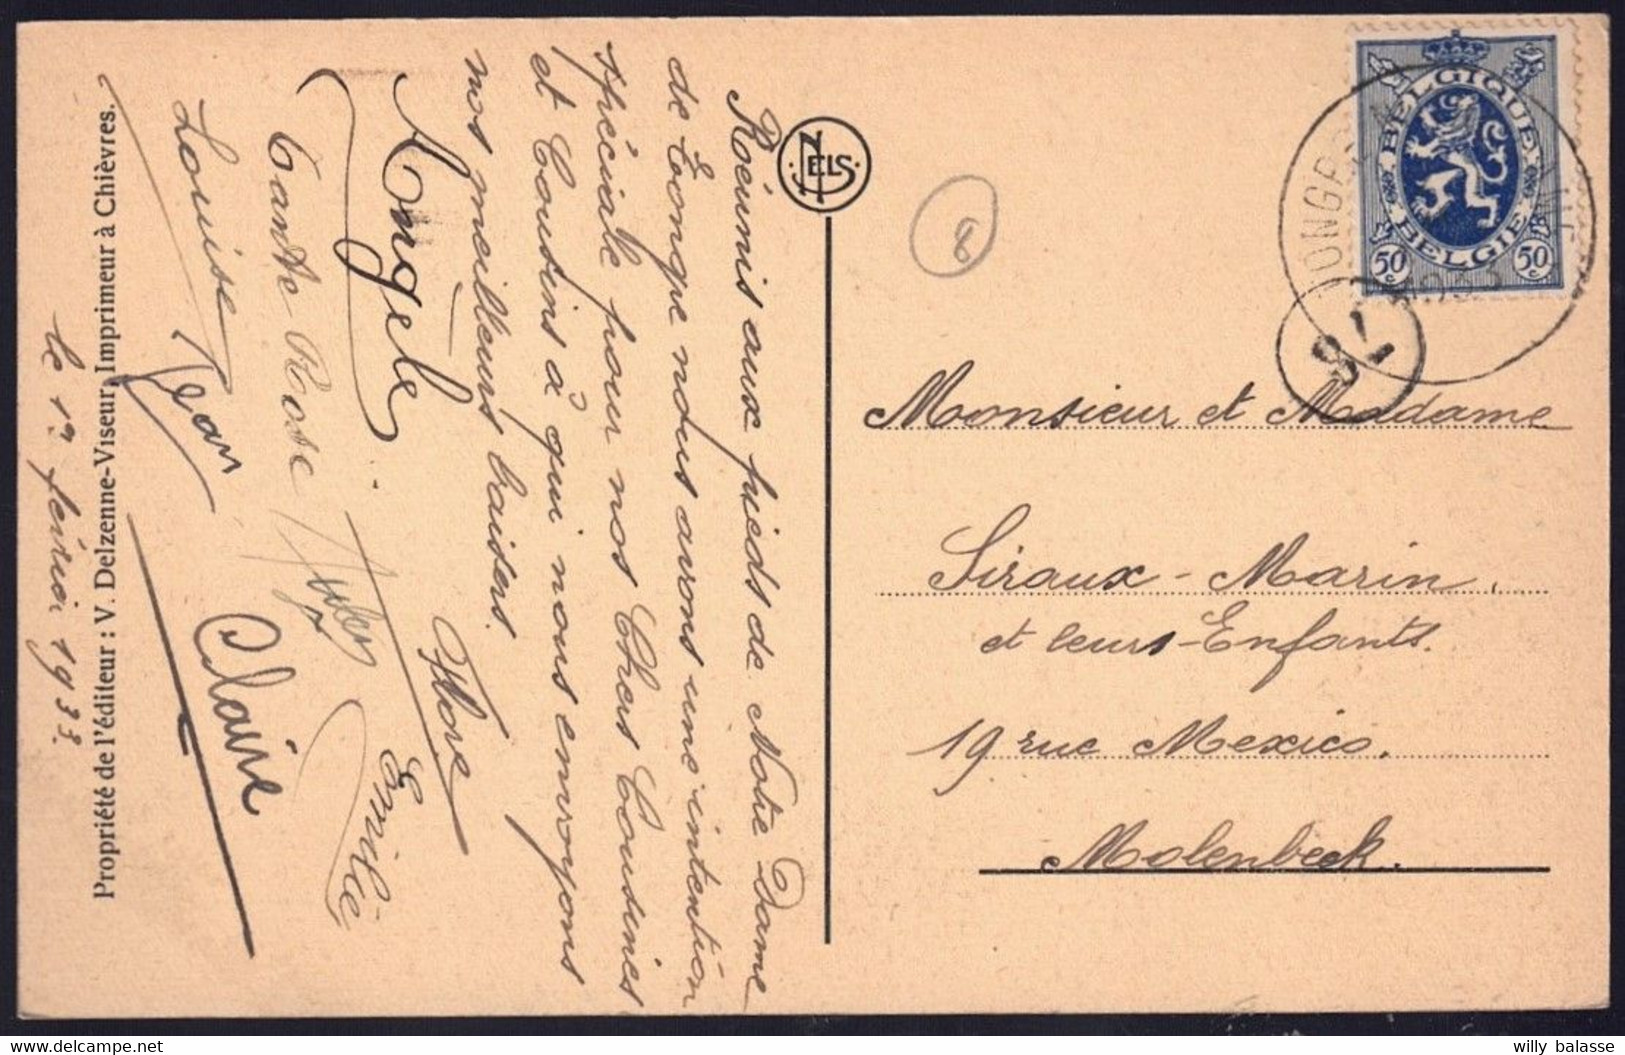 Réunis aux pieds de Notre Dame
de Tongre nous avons une intention
spéciale pour nos Chers Cousines
et Cousins à qui nous envoyons
nos meilleurs baisers.
Angèle
Flore
Tante Rose
Jules
Emilie
Louise
Jean
Claire
Propriété de l'éditeur : V. Delzenne-Viseur, Imprimeur à Chièvres.
le 19 février 1933.
NELS
8
BELGIQUE
BELGIË
50 c
50 c
1933
Monsieur et Madame
Siraux - Marin.
et leurs Enfants.
19 rue Mexico.
Molenbeek.
willy balasse